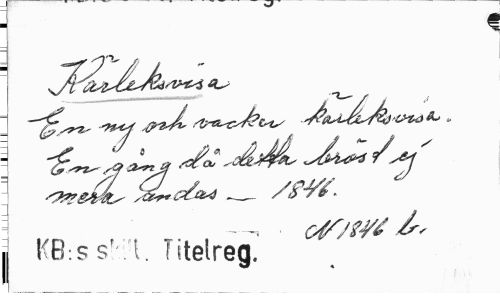 Kärleksvisa
En ny och vacker kärleksvisa.
En gång då detta bröst ej
mera andas — 1846.
N 1846 b.
KB:s skill. Titelreg.